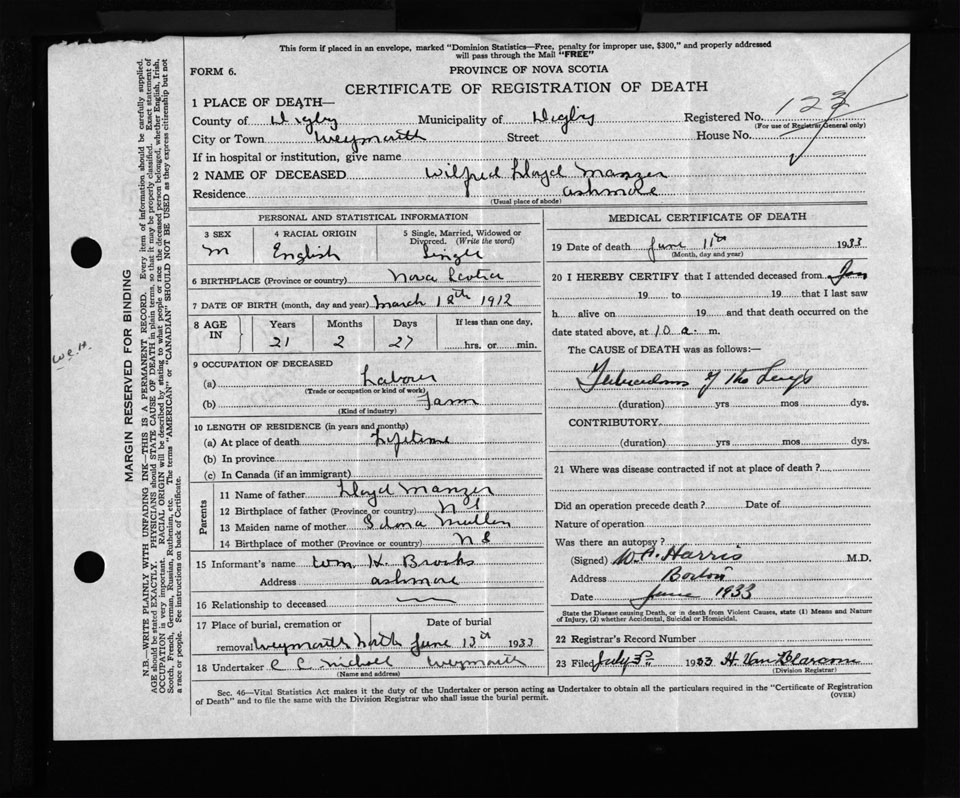 This form if placed in an envelope, marked "Dominion Statistics—Free, penalty for improper use, $300," and properly addressed
will pass through the Mail "FREE"
FORM 6.
PROVINCE OF NOVA SCOTIA
CERTIFICATE OF REGISTRATION OF DEATH
1 PLACE OF DEATH—
County of Digby Municipality of Digby Registered No. 123
(For use of Registrar General only)
City or Town Weymouth Street House No.
If in hospital or institution, give name
2 NAME OF DECEASED Wilfred Lloyd Manzer
Residence Ashmore
(Usual place of abode)
PERSONAL AND STATISTICAL INFORMATION
3 SEX 4 RACIAL ORIGIN 5 Single, Married, Widowed or
Divorced. (Write the word)
M English Single
6 BIRTHPLACE (Province or country) Nova Scotia
7 DATE OF BIRTH (month, day and year) March 18th 1912
8 AGE IN Years Months Days If less than one day,
21 2 27 hrs. or min.
9 OCCUPATION OF DECEASED
(a) Labour
(Trade or occupation or kind of work)
(b) Farm
(Kind of industry)
10 LENGTH OF RESIDENCE (in years and months)
(a) At place of death Lifetime
(b) In province
(c) In Canada (if an immigrant)
Parents
11 Name of father Lloyd Manzer
12 Birthplace of father (Province or country) N S
13 Maiden name of mother Mullen
14 Birthplace of mother (Province or country) N S
15 Informant's name Wm. H. Brooks
Address Ashmore
16 Relationship to deceased
17 Place of burial, cremation or Date of burial
removal Weymouth North June 13th 1933
18 Undertaker C C Nichols Weymouth
(Name and address)
MEDICAL CERTIFICATE OF DEATH
19 Date of death June 11th 1933
(Month, day and year)
20 I HEREBY CERTIFY that I attended deceased from Jan
19 to 19 that I last saw
h alive on 19 and that death occurred on the
date stated above, at 10 a. m.
The CAUSE of DEATH was as follows:—
Tuberculosis of the Lungs
(duration) yrs mos dys.
CONTRIBUTORY.
(duration) yrs mos dys.
21 Where was disease contracted if not at place of death?
Did an operation precede death? Date of
Nature of operation
Was there an autopsy?
(Signed) W. A. Harris M.D.
Address
Date June 1933
State the Disease causing Death, or in death from Violent Causes, state (1) Means and Nature
of Injury, (2) whether Accidental, Suicidal or Homicidal.
22 Registrar's Record Number
23 Filed July 1933 H. Van Blarcom
(Division Registrar)
Sec. 46—Vital Statistics Act makes it the duty of the Undertaker or person acting as Undertaker to obtain all the particulars required in the "Certificate of Registration
of Death" and to file the same with the Division Registrar who shall issue the burial permit.
(OVER)
MARGIN RESERVED FOR BINDING
N.B.—WRITE PLAINLY WITH UNFADING INK—THIS IS A PERMANENT RECORD. Every item of information should be carefully supplied.
AGE should be stated EXACTLY. PHYSICIANS should STATE CAUSE OF DEATH in plain terms, so that it may be properly classified. Exact statement of
OCCUPATION is very important. RACIAL ORIGIN will be described by stating to what people or race the deceased person belonged, whether English, Irish,
Scotch, French, German, Russian, Ruthenian, etc. The terms "AMERICAN" or "CANADIAN" SHOULD NOT BE USED as they express citizenship but not
a race or people. See instructions on back of Certificate.
W.E.H.